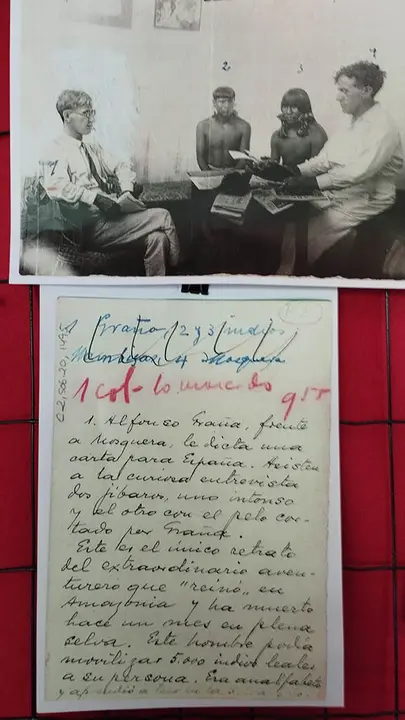 2
3
1 Graña, 2 y 3 indios
4 Mosquera
1 col- lo marcado
9 55
C-2,586-20, 1149
1. Alfonso Graña, frente
a Mosquera, le dicta una
carta para España. Asisten
a la curiosa entrevista
dos jíbaros, uno intonso
y el otro con el pelo cor-
tado por Graña.
Este es el único retrato
del extraordinario aven-
turero que "reinó" en
Amazonia y ha muerto
hace un mes en plena
selva. Este hombre podía
movilizar 5.000 indios leales
a su persona. Era analfabeto
y aprendió a leer en la